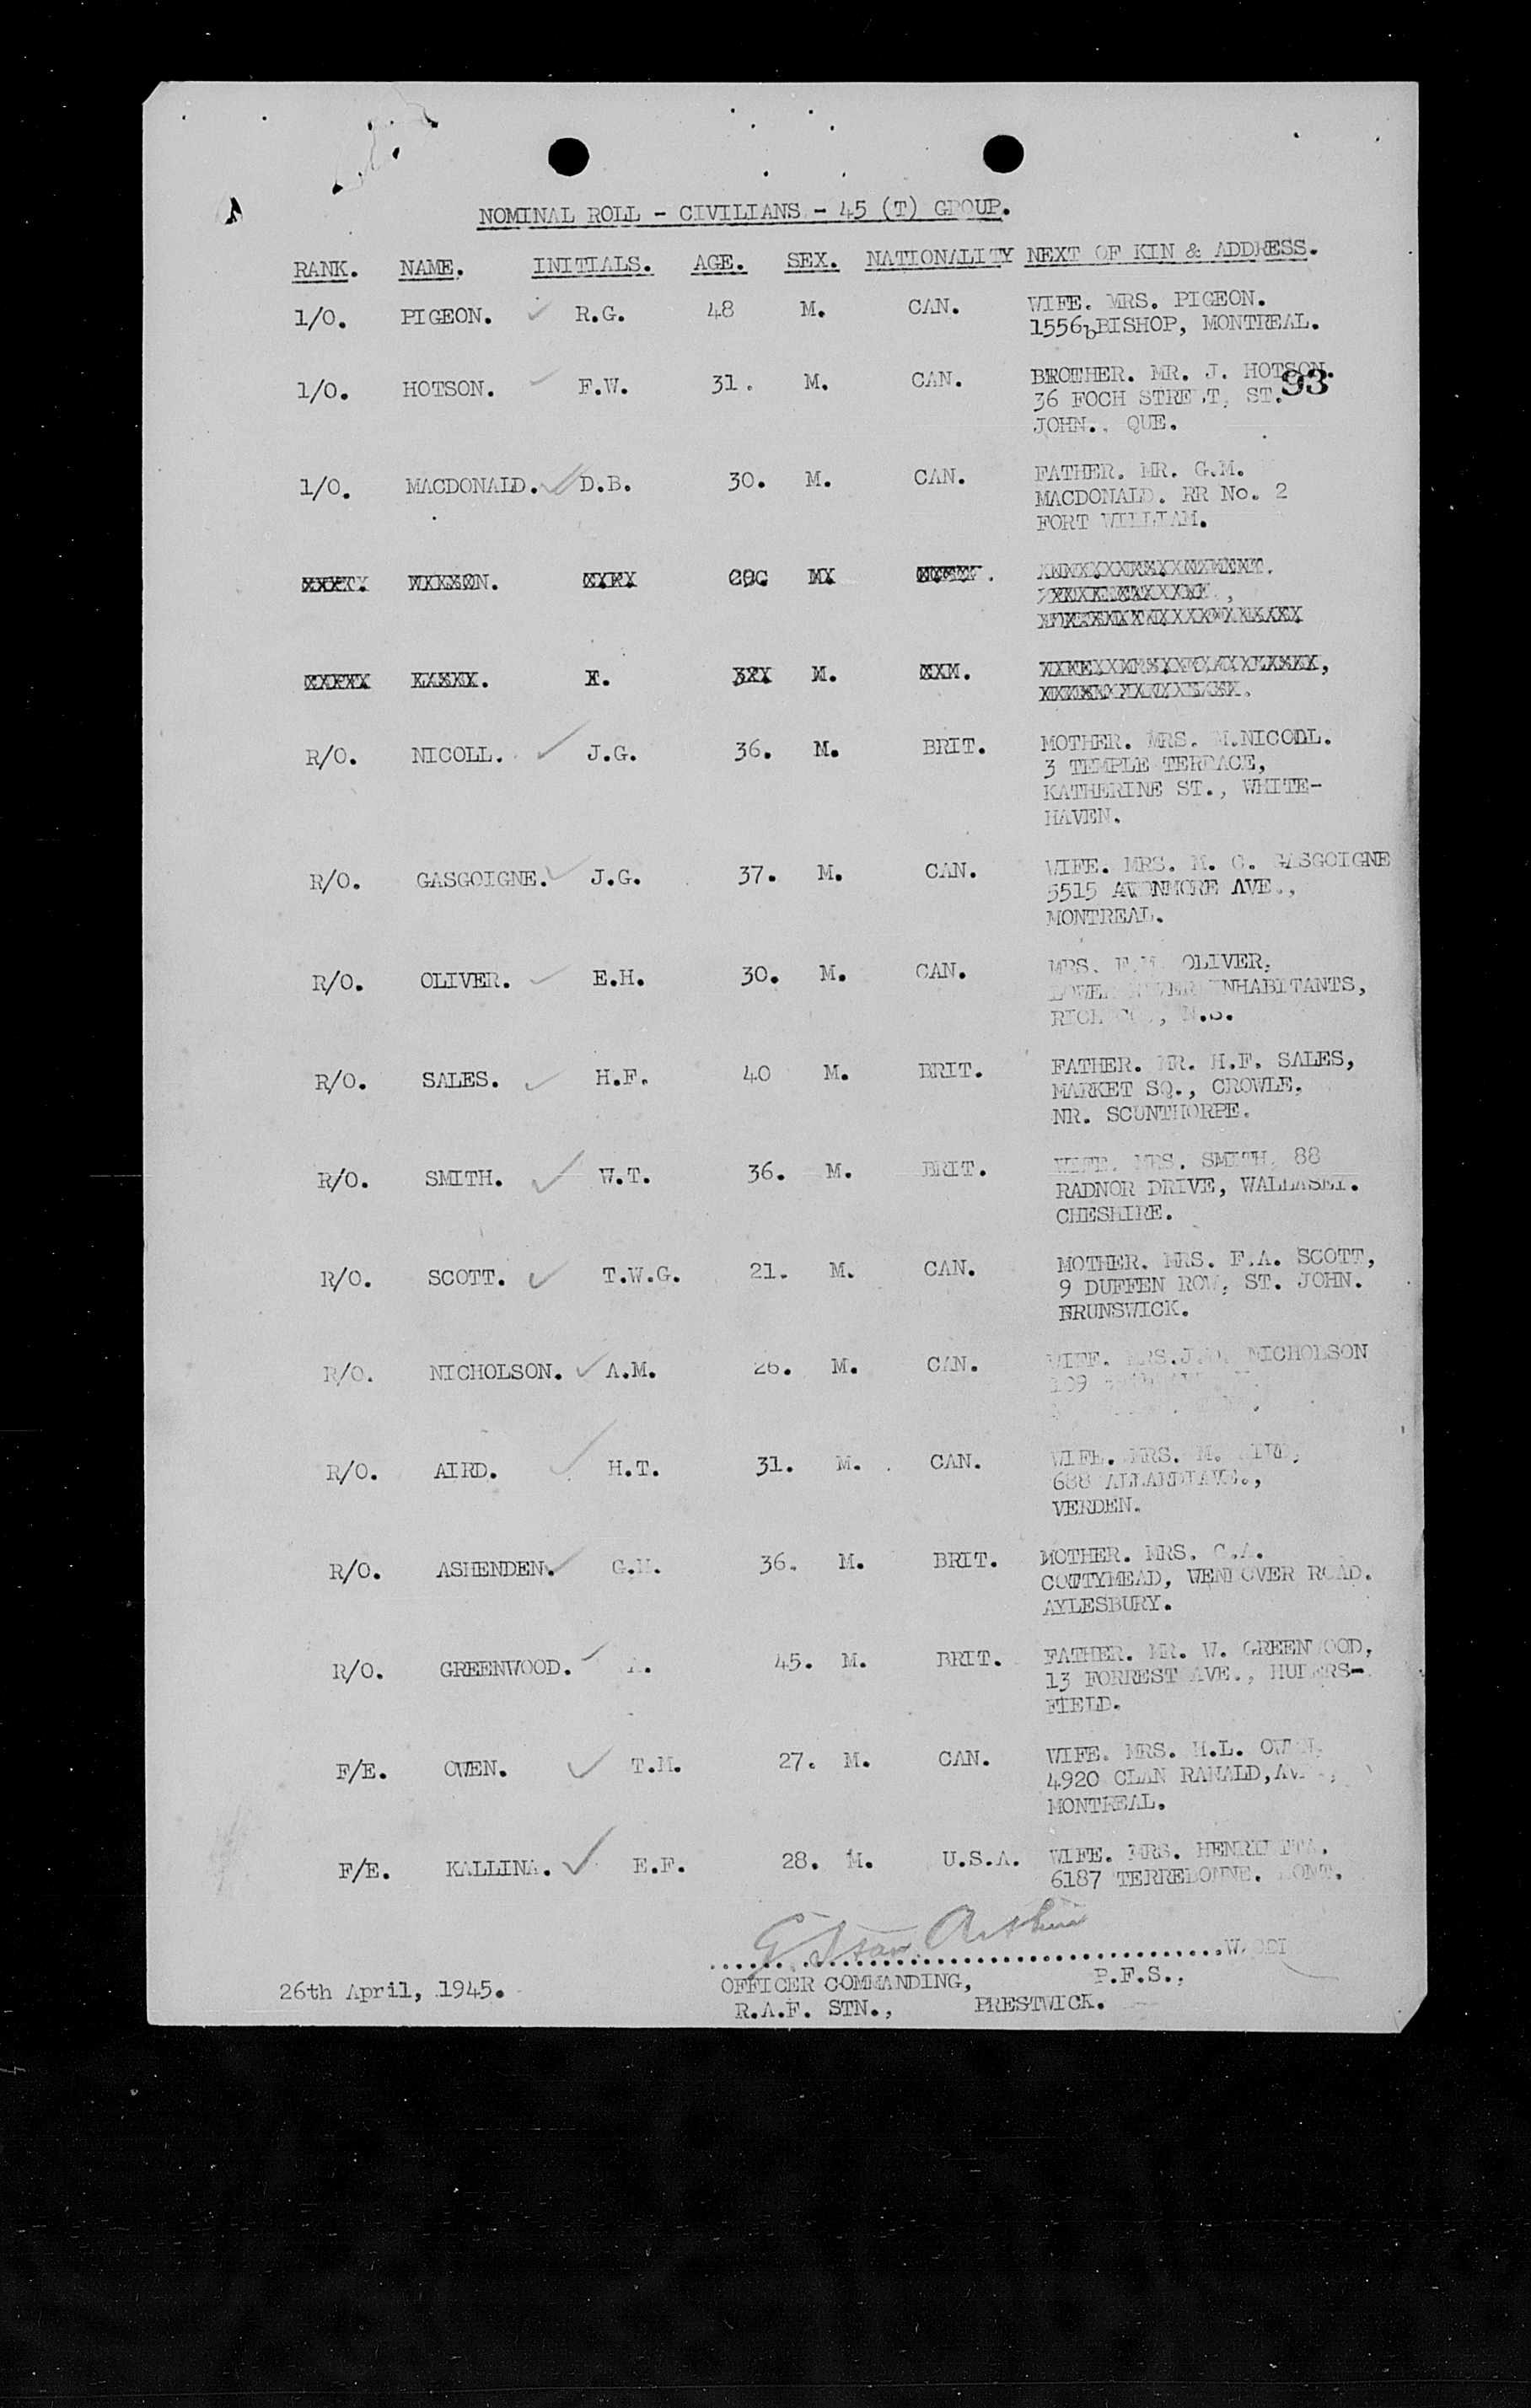 NOMINAL ROLL - CIVILIANS - 45 (T) GROUP.
RANK. NAME. INITIALS. AGE. SEX. NATIONALITY NEXT OF KIN & ADDRESS.
1/O. PIGEON. R.G. 48 M. CAN. WIFE. MRS. PIGEON.
1556b BISHOP, MONTREAL.
1/O. HOTSON. F.W. 31. M. CAN. BROTHER. MR. J. HOTSON.
93
36 FOCH STREET, ST.
JOHN., QUE.
1/O. MACDONALD. D.B. 30. M. CAN. FATHER. MR. G.M.
MACDONALD. RR No. 2
FORT WILLIAM.
R/O. NICOLL. J.G. 36. M. BRIT. MOTHER. MRS. M.NICOLL.
3 TEMPLE TERRACE,
KATHERINE ST., WHITE-
HAVEN.
R/O. GASGOIGNE. J.G. 37. M. CAN. WIFE. MRS. M. C. GASGOIGNE
5515 AVONMORE AVE.,
MONTREAL.
R/O. OLIVER. E.H. 30. M. CAN. MRS. OLIVER,
LOWER RIVER INHABITANTS,
RICH CO., N.S.
R/O. SALES. H.F. 40 M. BRIT. FATHER. MR. H.F. SALES,
MARKET SQ., CROWLE,
NR. SCUNTHORPE.
R/O. SMITH. W.T. 36. M. BRIT. WIFE. MRS. SMITH, 88
RADNOR DRIVE, WALLASEY.
CHESHIRE.
R/O. SCOTT. T.W.G. 21. M. CAN. MOTHER. MRS. F.A. SCOTT,
9 DUFFEN ROW, ST. JOHN.
BRUNSWICK.
R/O. NICHOLSON. A.M. 26. M. CAN. WIFE. MRS. NICHOLSON
109
R/O. AIRD. H.T. 31. M. CAN. WIFE. MRS. M.
688 AVE.,
VERDEN.
R/O. ASHENDEN. G.H. 36. M. BRIT. MOTHER. MRS. C.A.
COTTYMEAD, WENDOVER ROAD.
AYLESBURY.
R/O. GREENWOOD. 45. M. BRIT. FATHER. MR. W. GREENWOOD,
13 FORREST AVE., HUDERS-
FIELD.
F/E. OWEN. T.M. 27. M. CAN. WIFE. MRS. H.L. OWEN,
4920 CLAN RANALD, AVE.,
MONTREAL.
F/E. KALLINA. E.F. 28. M. U.S.A. WIFE. MRS. HENRIETTA.
6187 TERREBONNE. MONT.
26th April, 1945. OFFICER COMMANDING, P.F.S.,
R.A.F. STN., PRESTWICK.